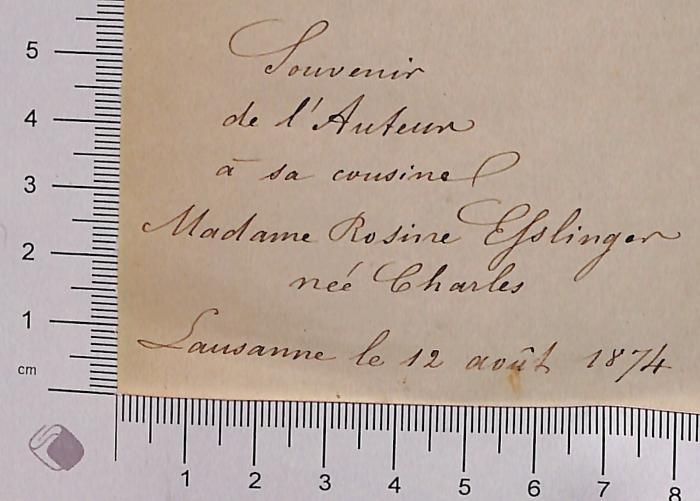 Souvenir
de l'Auteur
à sa cousine
Madame Rosine Esslinger
neé Charles
Lausanne le 12 août 1874
5
4
3
2
1
cm
1 2 3 4 5 6 7 8